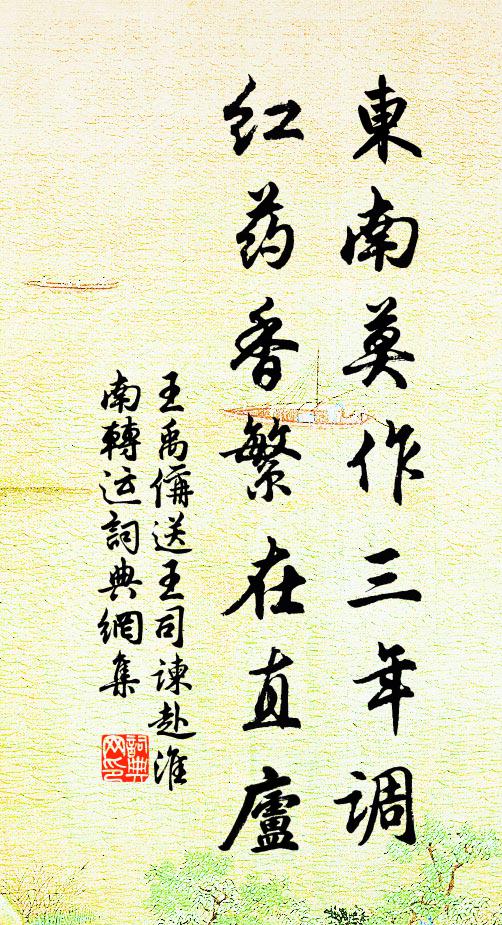 東南莫作三年调
红药香繁在直廬
王禹偁送王司諫赴淮
南轉运詞典網集
詞典网印